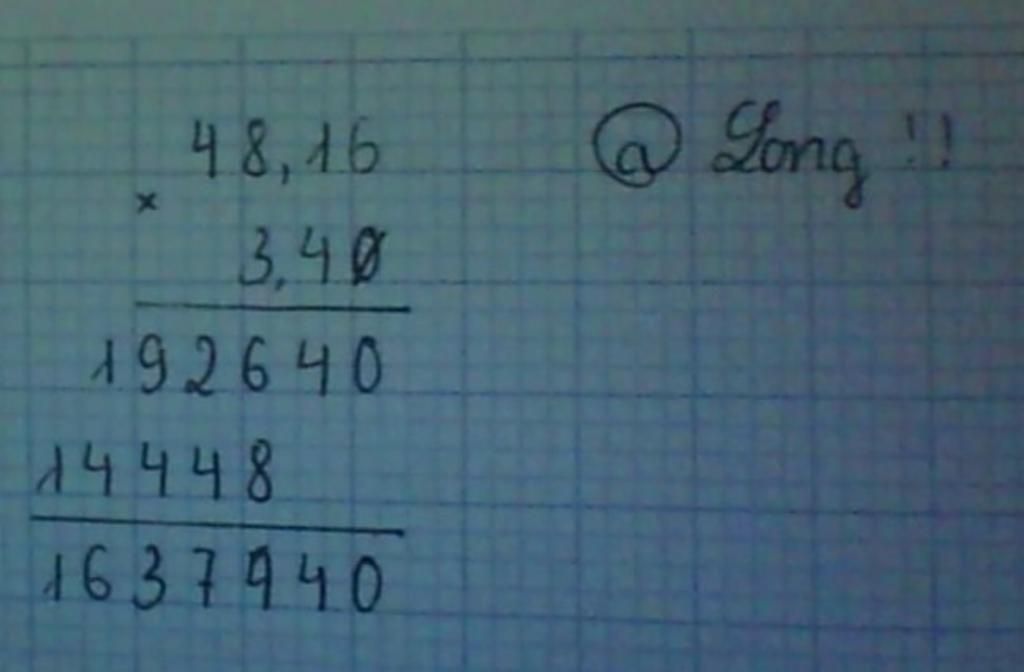 48,16 @ Long !!
×
3,40
192640
14448
1637940